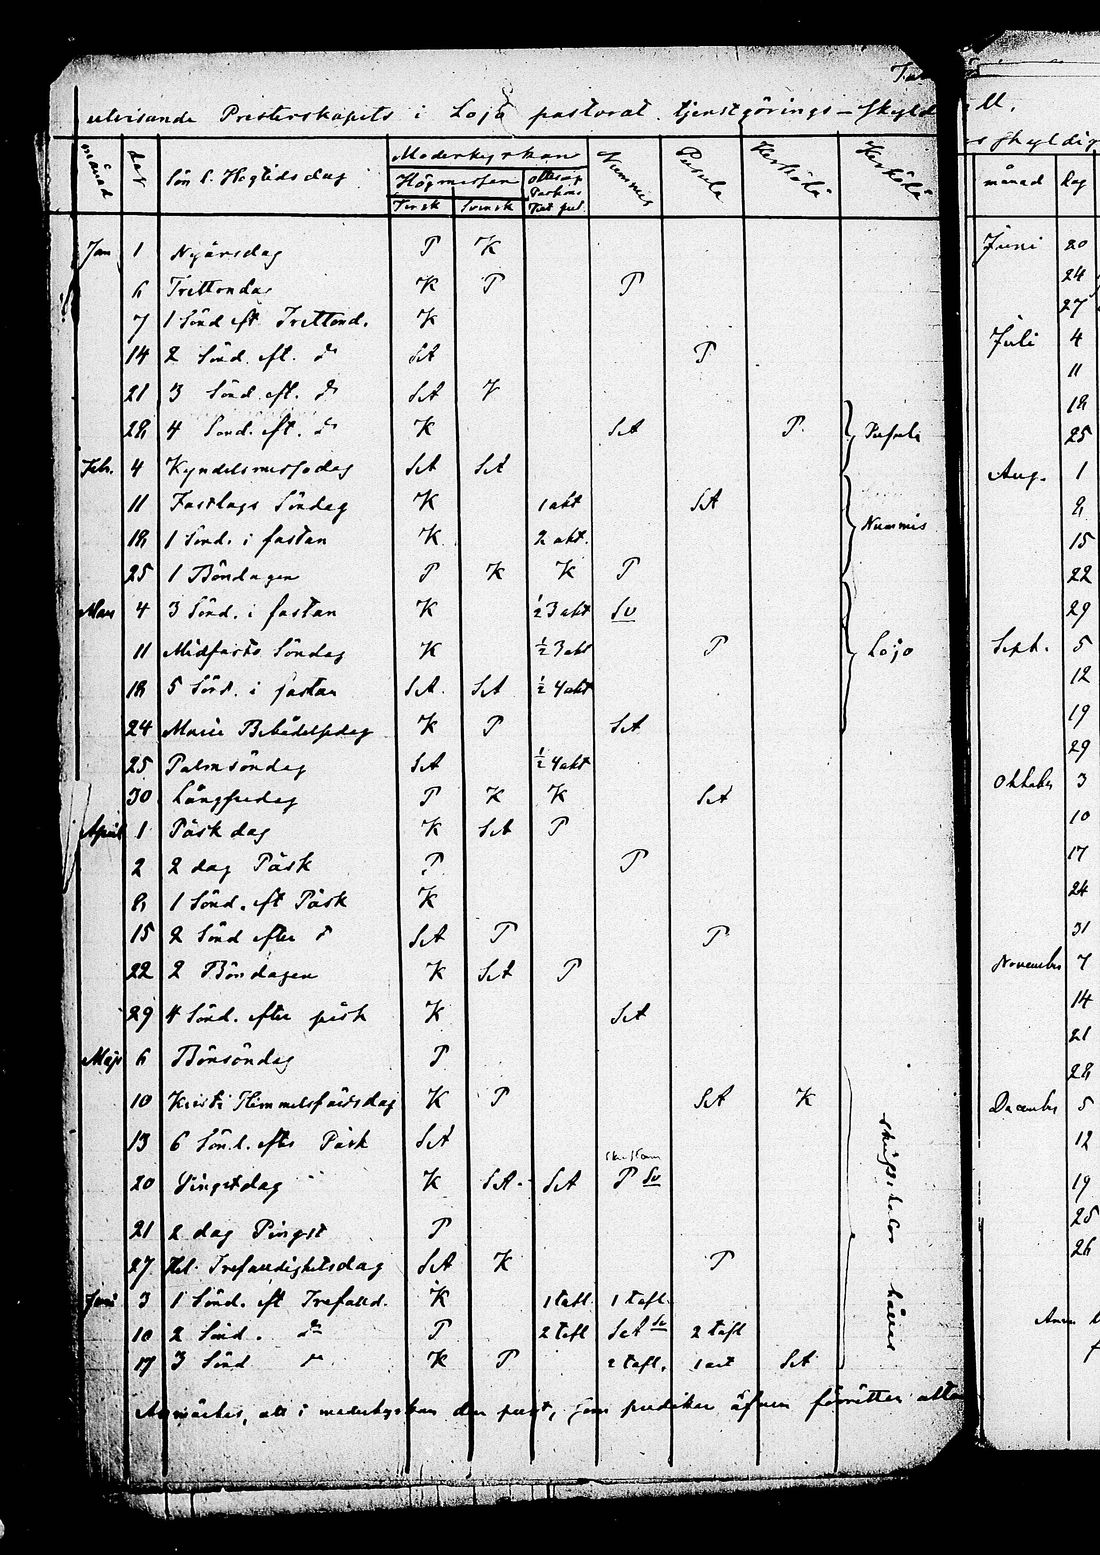 utvisande Presterskapets i Lojo pastorat tjenstgörings-skyld
månad dag Sön & Högtidsdag Moderkyrkan Nummis Pusula
Högmessan
Finsk Svensk
Jan 1 Nyårsdag P K
6 Trettonda K P P
7 1 Sönd eft Trettond. K
14 2 Sönd. eft. do SA P
21 3 Sönd. eft. do SA K
28 4 Sönd. eft. do K SA P Pusula
Feb. 4 Kyndelsmessodag SA SA
11 Fastlags Söndag K 1 akt SA
18 1 Sönd. i fastan K 2 akt. Nummis
25 1 Böndagen P K K P
Mars 4 3 Sönd. i fastan K ½ 3 akt Sv
11 Midfasto Söndag K ½ 3 akt P Lojo
18 5 Sönd. i fastan SA SA ½ 4 akt
24 Marie Bebådelsedag K P SA
25 Palmsöndag SA ½ 4 akt
30 Långfredag P K K SA
April 1 Påsk dag K SA P
2 2 dag Påsk P P
8 1 Sönd. eft Påsk K
15 2 Sönd efter d SA P P
22 2 Böndagen K SA P
29 4 Sönd. efter påsk K SA
Maji 6 Bönsöndag P
10 Kristi Himmelsfärdsdag K P SA K
13 6 Sönd. efter Påsk SA
20 Pingstdag K SA SA P Sv
21 2 dag Pingst P
27 Hel. Trefaldighetsdag SA K P
Juni 3 1 Sönd. eft Trefald. K 1 tafl 1 tafl.
10 2 Sönd. do P 2 tafl SA Sv 2 tafl
17 3 Sönd do K P 2 tafl. 1 akt SA
skriftskolor hållas
Anmärkes, att i moderkyrkan den prest, som predikar äfven förrättar altar
månad Dag
Juni 20
24
27
Juli 4
11
18
25
Aug. 1
8
15
22
29
Sept. 5
12
19
29
Oktober 3
10
17
24
31
November 7
14
21
28
December 5
12
19
25
26